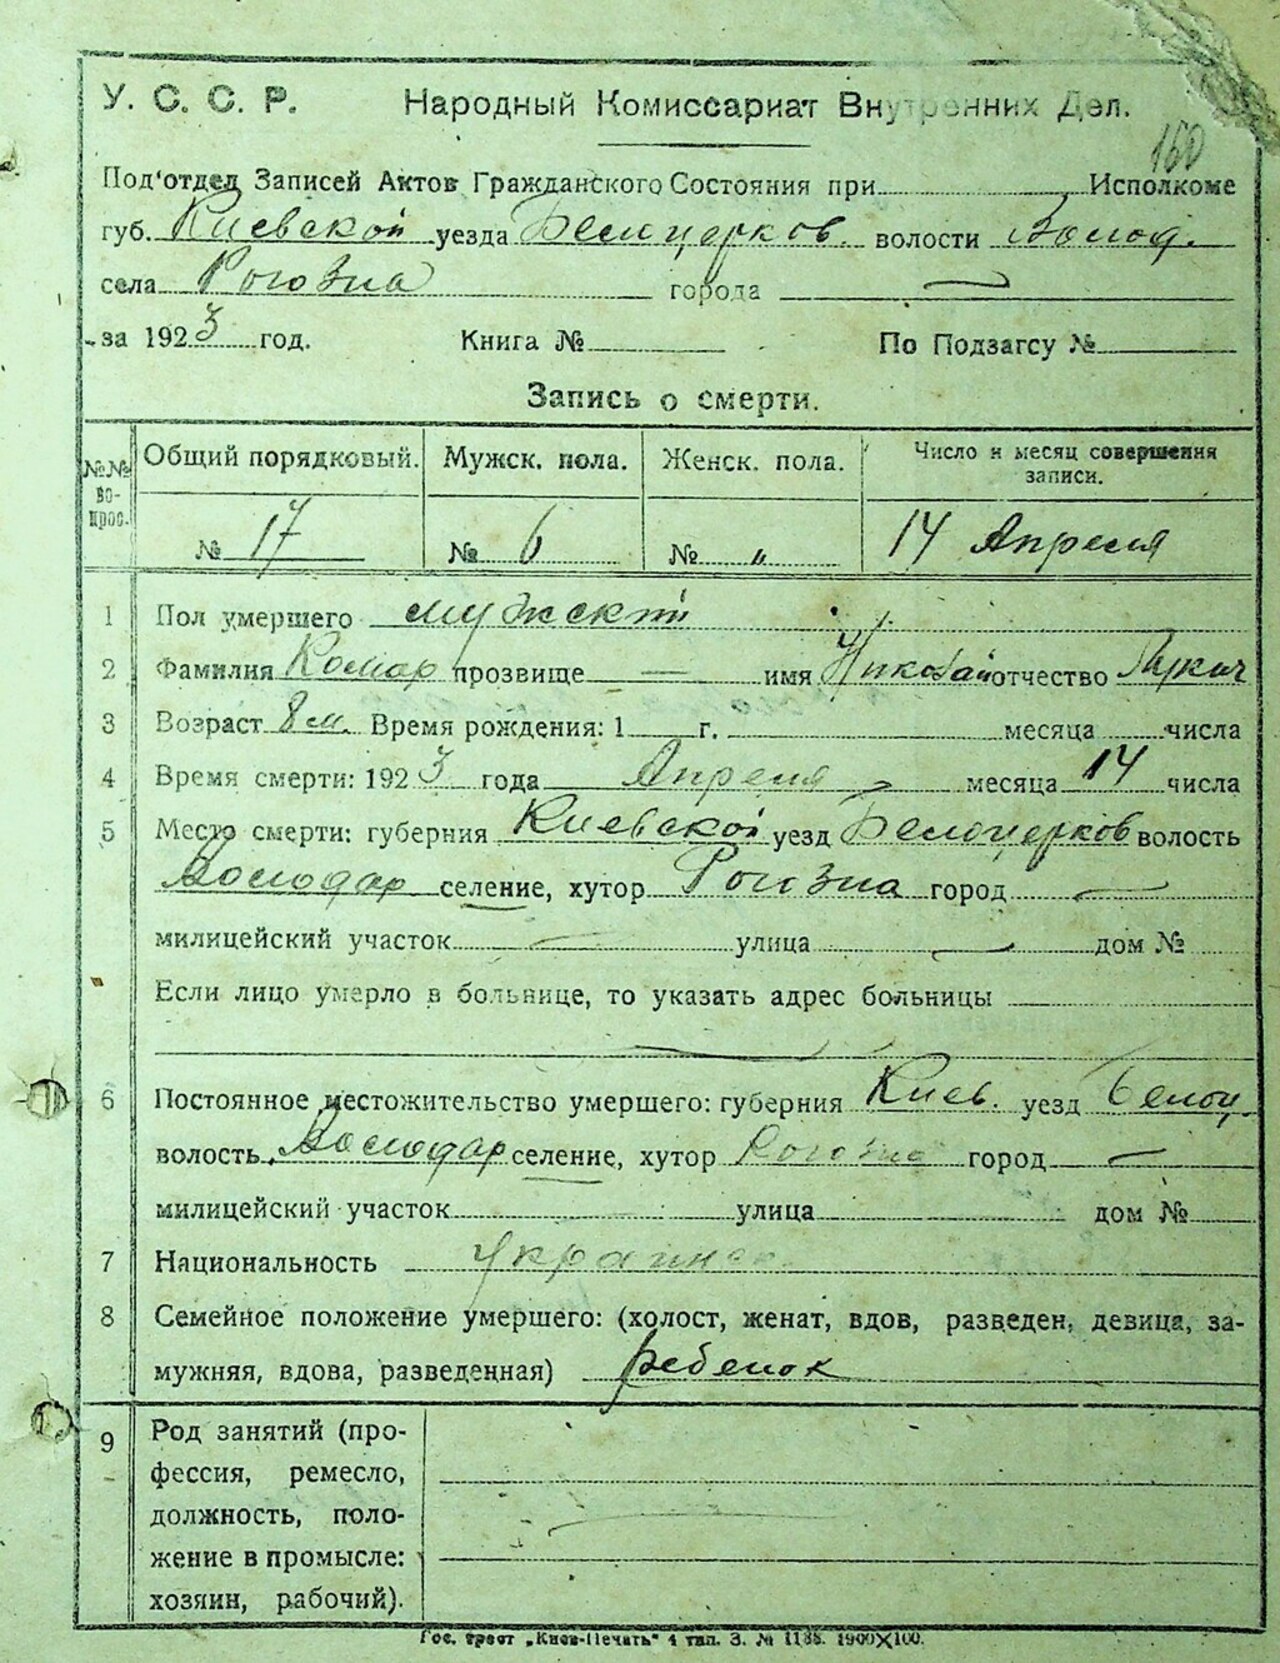 У. С. С. Р. Народный Комиссариат Внутренних Дел.
150
Под'отдел Записей Актов Гражданского Состояния при Исполкоме
губ. Киевской уезда Белоцерков. волости Волод.
села Рогозна города —
за 1923 год. Книга № По Подзагсу №
Запись о смерти.
№№ вопрос. Общий порядковый. Мужск. пола. Женск. пола. Число и месяц совершения записи.
№ 17 № 6 № „ 14 Апреля
1 Пол умершего мужский
2 Фамилия Комар прозвище — имя Николай отчество
3 Возраст 8 м. Время рождения: 1 г. месяца числа
4 Время смерти: 1923 года Апреля месяца 14 числа
5 Место смерти: губерния Киевской уезд Белоцерков волость
Володар селение, хутор Рогозна город —
милицейский участок — улица — дом №
Если лицо умерло в больнице, то указать адрес больницы
—
6 Постоянное местожительство умершего: губерния Киев. уезд Белоц.
волость Володар селение, хутор Рогозна город —
милицейский участок улица дом №
7 Национальность Украинск
8 Семейное положение умершего: (холост, женат, вдов, разведен, девица, за-
мужняя, вдова, разведенная) ребенок
9 Род занятий (про-
фессия, ремесло,
должность, поло-
жение в промысле:
хозяин, рабочий).
Гос. трест „Киев-Печать" 4 тип. З. № 1135. 1900×100.